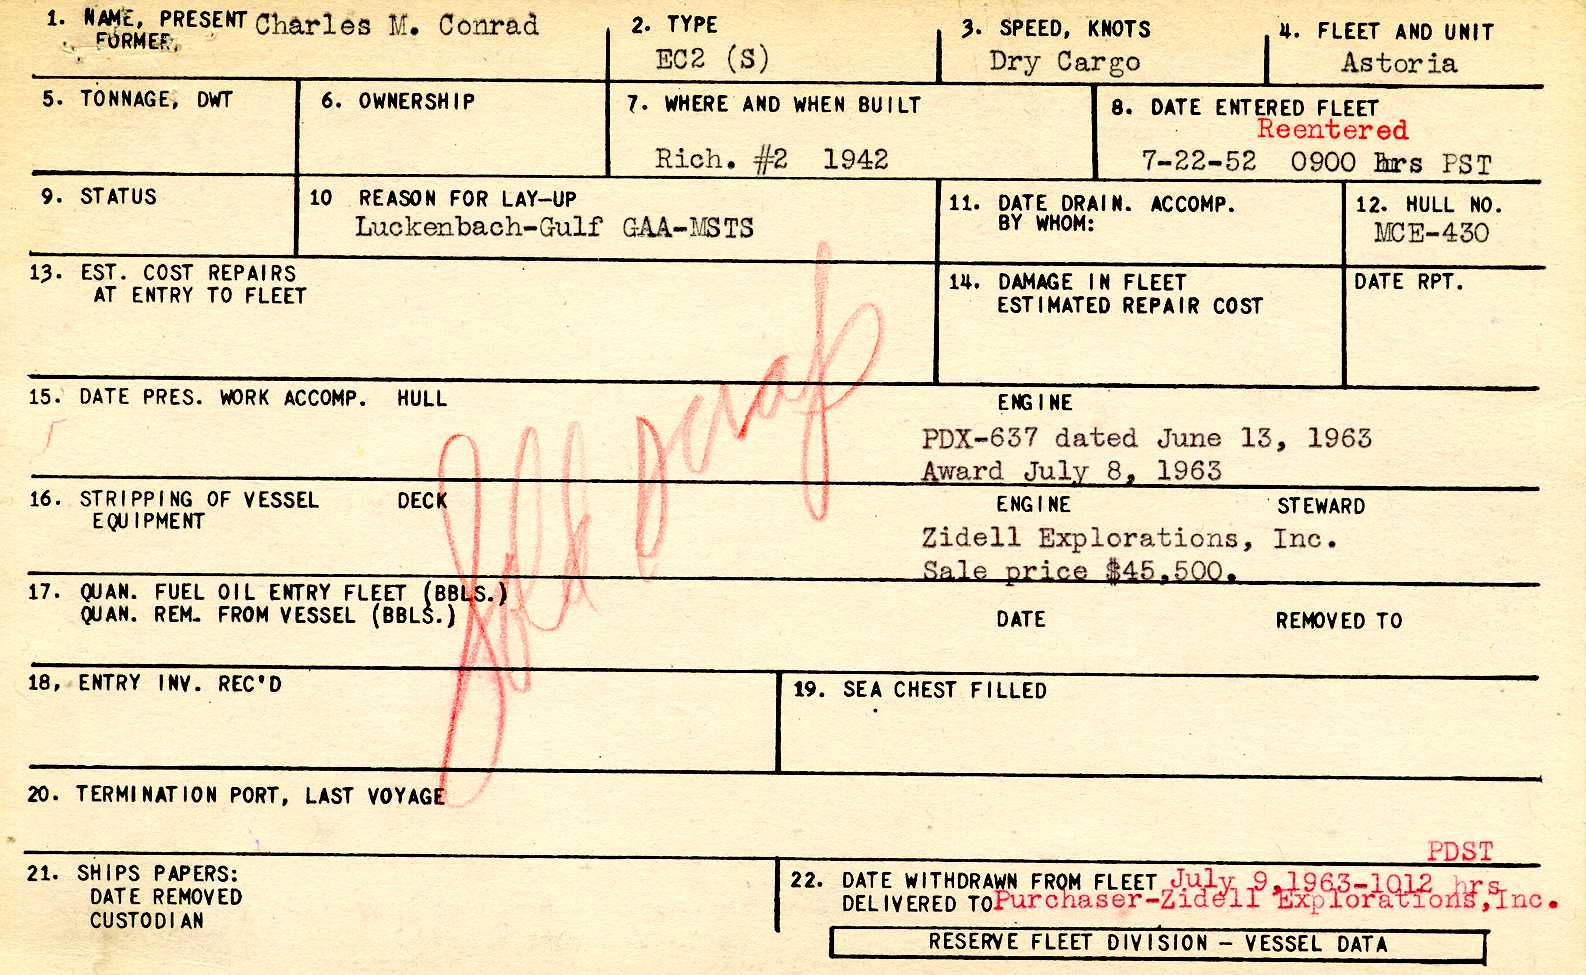 1. NAME, PRESENT Charles M. Conrad
FORMER,
2. TYPE
EC2 (S)
3. SPEED, KNOTS
Dry Cargo
4. FLEET AND UNIT
Astoria
5. TONNAGE, DWT
6. OWNERSHIP
7. WHERE AND WHEN BUILT
Rich. #2 1942
8. DATE ENTERED FLEET
Reentered
7-22-52 0900 hrs PST
9. STATUS
10 REASON FOR LAY-UP
Luckenbach-Gulf GAA-MSTS
11. DATE DRAIN. ACCOMP.
BY WHOM:
12. HULL NO.
MCE-430
13. EST. COST REPAIRS
AT ENTRY TO FLEET
14. DAMAGE IN FLEET
ESTIMATED REPAIR COST
DATE RPT.
15. DATE PRES. WORK ACCOMP. HULL
ENGINE
PDX-637 dated June 13, 1963
Award July 8, 1963
Sold scrap
16. STRIPPING OF VESSEL DECK
EQUIPMENT
ENGINE STEWARD
Zidell Explorations, Inc.
Sale price $45,500.
17. QUAN. FUEL OIL ENTRY FLEET (BBLS.)
QUAN. REM. FROM VESSEL (BBLS.)
DATE REMOVED TO
18, ENTRY INV. REC'D
19. SEA CHEST FILLED
20. TERMINATION PORT, LAST VOYAGE
21. SHIPS PAPERS:
DATE REMOVED
CUSTODIAN
PDST
22. DATE WITHDRAWN FROM FLEET July 9,1963-1012 hrs
DELIVERED TO Purchaser-Zidell Explorations,Inc.
RESERVE FLEET DIVISION - VESSEL DATA